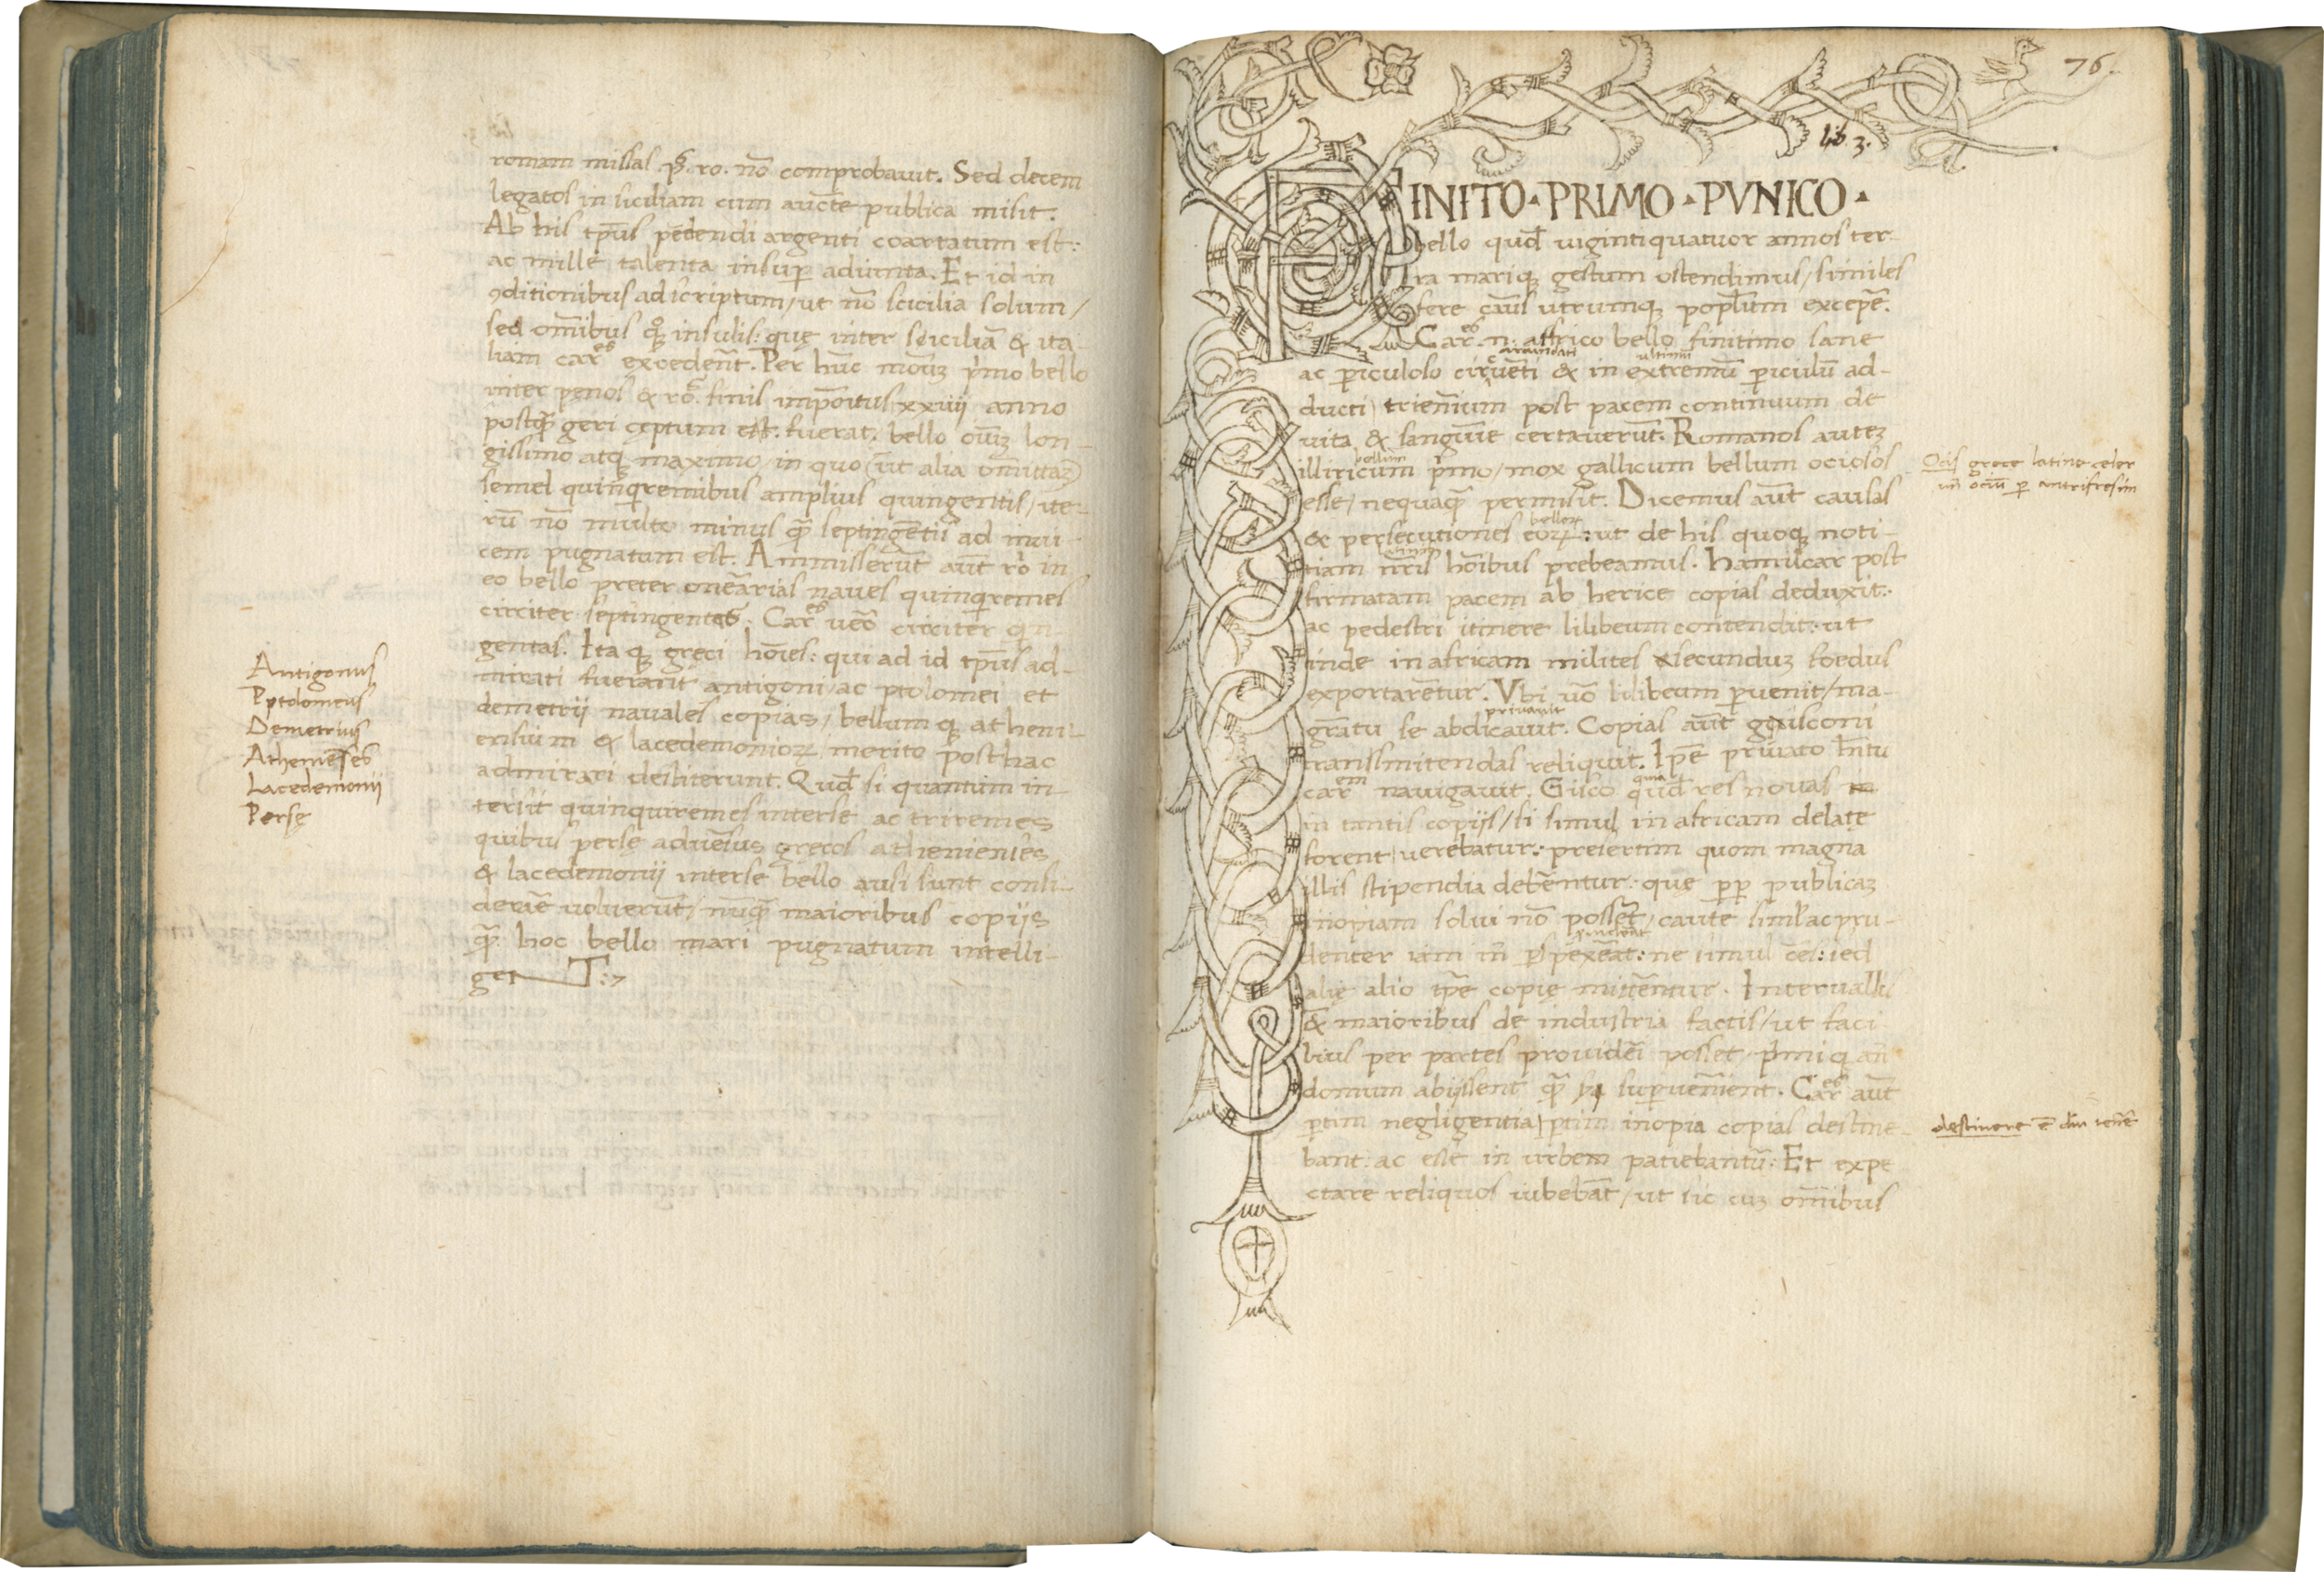 romam missas .p̄. ro. nō comprobauit. Sed decem
legatos in siciliam cum aucte publica misit.
Ab his tp̄us pēdendi argenti coartatum est:
ac mille talenta insup adiuncta. Et id in
ꝯditionibus adscriptum/ut nō scicilia solum/
sed om̄ibus qͦꝫ insulis: quę inter siciciliā & ita-
liam Car^es excedent̄. Per hūc modūꝫ primo bello
inter penos & rō. finis impositus/xxiiij anno
postq̄ geri cęptum est. fuerat. bello oīuꝫ lon-
gissimo atqꝫ maximo/in quo (ut alia omittaꝫ)
semel quinqremibus amplius quingentis/ite-
rū nō multo minus q̄ septingētis ad inui-
cem pugnatum est. Ammisserunt aūt ro in
eo bello preter onerarias naues quinqremes
circiter septingentas. Car^es uēo circiter qn-
gentas. Itaqꝫ greci hoīes: qui ad id tp̄us ad-
mirati fuerant antigoni/ac ptolomei et
demetrij nauales copias/bellumqꝫ atheni-
ensium & lacedemonioꝝ merito posthac
admirari destiterunt. Quod si quantum in-
tersit quinquiremes interse ac triremes
quibus perse aduersus grecos athenienses
& lacedemonij interse bello ausi sunt consi-
derare uoluerūt/nūq̄ maioribus copijs
q̄ hoc bello mari pugnatum intelli-
get T:7
Antigonus
Pptolomeus
Demetrius
Athenieses
Lacedemonij
Persę
76.
lib. 3.
FINITO · PRIMO · PVNICO ·
bello quod uigintiquatuor annos ter-
ra mariqꝫ gestum ostendimus/similes
fere cāus utrumqꝫ populum excepē.
Car^es .n. affrico bello finitimo sane
ac piculoso circuēti & in extremū piculū ad-
ducti/trienīum post pacem continuum de
uita & sanguīe certauerūt. Romanos auteꝫ
bellum
illiricum pmo/mox gallicum bellum ociosos
esse/nequaq̄ permisit. Dicemus aūt causas
belloꝝ
& persecutiones eoꝝ: ut de his quoqꝫ noti-
tiam nr̄is hoībus prebeamus. Hamilcar post
firmatam pacem ab herice copias deduxit:
ac pedestri itinere lilibeum contendit: ut
inde in africam milites secunduꝫ foedus
exportarentur. Vbi uō lilibeum puenit/ma-
priuauit
gratu se abdicauit. Copias aūt gisconi
transmitendas reliquit. Ipē priuato
quia
car^em nauigauit. Gisco quod res nouas
in tantis copijs/si simul in africam delatę
forent/uerebatur: presertim quom magna
illis stipendia debentur: que pp publicaꝫ
inopiam solui nō possēt/caute simul ac pru-
denter iam
alię alio tp̄e copię mittentur. Interuallis
& maioribus de industria factis/ut faci
lius per partes prouideri posset/primiqꝫ an̄
domum abijssent q̄ superuenīent. Car^es aūt
ptim negligentia/ptim inopia copias destine-
bant: ac esse in urbem patiebantur: Et expe
ctare reliquos iubebāt/ut sic cuꝫ om̄ibus
Ocis grece latine celer
un̄ ociū p antifrasim
destinere ē diu tenēr